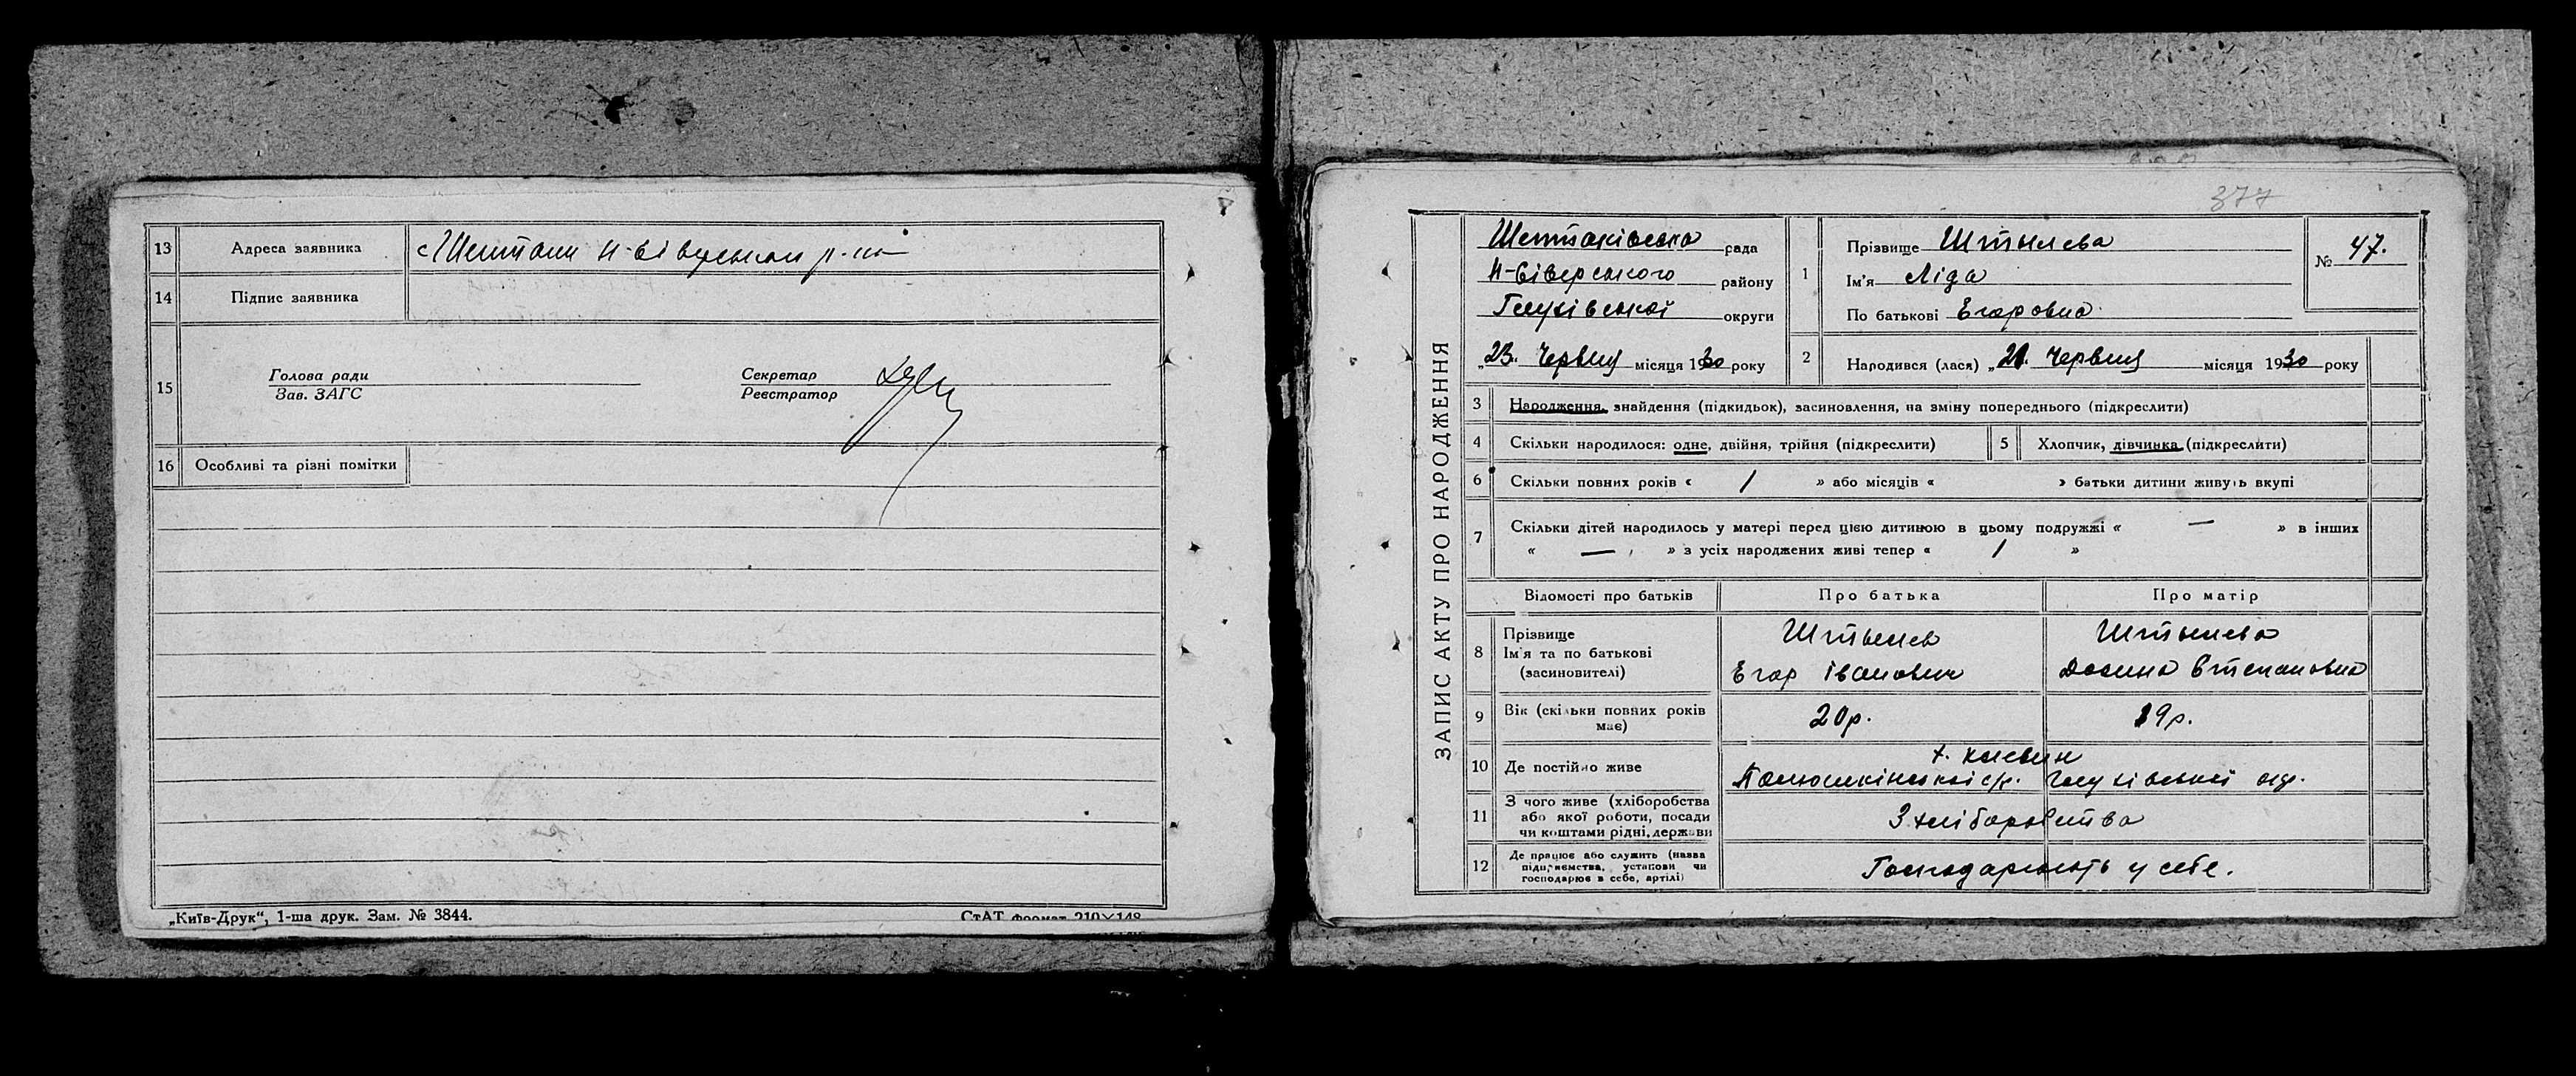 13 Адреса заявника с Шептаки Н-Сіверськ р-н
14 Підпис заявника
15 Голова ради Секретар
Зав. ЗАГС Реєстратор
16 Особливі та різні помітки
„Київ-Друк“, 1-ша друк. Зам. № 3844. СтАТ формат 210×148
377
ЗАПИС АКТУ ПРО НАРОДЖЕННЯ
Шептаківська рада
Н-Сіверського району
Глухівської округи
„23„ Червня місяця 1930 року
1 Прізвище Штылева
Ім'я Ліда
По батькові Егоровна
№ 47.
2 Народився (лася) „21„ Червня місяця 1930 року
3 Народження, знайдення (підкидьок), засиновлення, на зміну попереднього (підкреслити)
4 Скільки народилося: одне, двійня, трійня (підкреслити) 5 Хлопчик, дівчинка (підкреслити)
6 Скільки повних років « 1 » або місяців « » батьки дитини живуть вкупі
7 Скільки дітей народилось у матері перед цією дитиною в цьому подружжі « — » в інших
« — » з усіх народжених живі тепер « 1 »
Відомості про батьків Про батька Про матір
8 Прізвище Штылев Штылева
Ім'я та по батькові Егор Іванович Степановна
(засиновителі)
9 Вік (скільки повних років має) 20р. 19р.
10 Де постійно живе х. с/р. Глухівської окр.
11 З чого живе (хліборобства або якої роботи, посади чи коштами рідні, держави З хліборобства
12 Де працює або служить (назва підприємства, установи чи господарює в себе, артілі) Господарюють у себе.